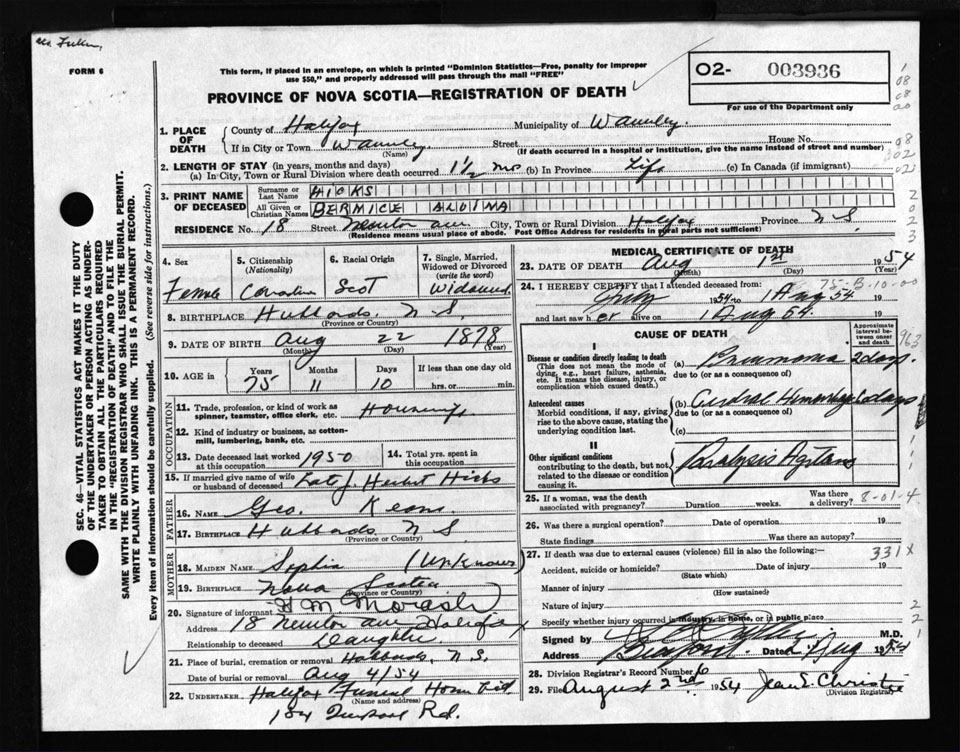 FORM 6
This form, if placed in an envelope, on which is printed "Dominion Statistics—Free, penalty for improper
use $50," and properly addressed will pass through the mail "FREE"
O2- 003936
For use of the Department only
PROVINCE OF NOVA SCOTIA—REGISTRATION OF DEATH
1. PLACE OF DEATH
County of Halifax Municipality of Waverley.
If in City or Town Waverley Street House No.
(Name) (If death occurred in a hospital or institution, give the name instead of street and number)
2. LENGTH OF STAY (in years, months and days)
(a) In City, Town or Rural Division where death occurred 1½ mo (b) In Province Life (c) In Canada (if immigrant)
3. PRINT NAME OF DECEASED
Surname or Last Name HICKS
All Given or Christian Names BERMICE ALDINA
RESIDENCE No. 18 Street Newton ave City, Town or Rural Division Halifax Province N S
(Residence means usual place of abode. Post Office Address for residents in rural parts not sufficient)
4. Sex Female
5. Citizenship (Nationality) Canadian
6. Racial Origin Scot
7. Single, Married, Widowed or Divorced (write the word) Widowed
8. BIRTHPLACE Hubbards, N. S.
(Province or Country)
9. DATE OF BIRTH Aug 22 1878
(Month) (Day) (Year)
10. AGE in Years 75 Months 11 Days 10 If less than one day old hrs. or min.
OCCUPATION
11. Trade, profession, or kind of work as spinner, teamster, office clerk, etc. Housewife
12. Kind of industry or business, as cotton-mill, lumbering, bank, etc.
13. Date deceased last worked at this occupation 1950
14. Total yrs. spent in this occupation
15. If married give name of wife or husband of deceased Late J. Herbert Hicks
FATHER
16. Name Geo.
17. Birthplace Hubbards N S.
(Province or Country)
MOTHER
18. MAIDEN NAME Sophia (Unknown)
19. BIRTHPLACE Nova Scotia
(Province or Country)
20. Signature of informant H M Morash
Address 18 Newton ave Halifax
Relationship to deceased Daughter
21. Place of burial, cremation or removal Hubbards, N.S.
Date of burial or removal Aug 4/54
22. UNDERTAKER Halifax Funeral Home Ltd.
(Name and address)
Rd.
MEDICAL CERTIFICATE OF DEATH
23. DATE OF DEATH Aug 1st 1954
(Month) (Day) (Year)
24. I HEREBY CERTIFY that I attended deceased from:
July 1954 to 1 Aug 54.
and last saw her alive on 1 Aug 54.
CAUSE OF DEATH
Approximate interval between onset and death
I
Disease or condition directly leading to death
(This does not mean the mode of dying, e.g., heart failure, asthenia, etc. It means the disease, injury, or complication which caused death.)
(a) Pneumonia 2 days.
due to (or as a consequence of)
Antecedent causes
Morbid conditions, if any, giving rise to the above cause, stating the underlying condition last.
(b) Cerebral Hemorrhage days
due to (or as a consequence of)
(c)
II
Other significant conditions
contributing to the death, but not related to the disease or condition causing it
Paralysis Agitans
25. If a woman, was the death associated with pregnancy? Duration weeks. Was there a delivery?
8-01-4
26. Was there a surgical operation? Date of operation 19
State findings Was there an autopsy?
27. If death was due to external causes (violence) fill in also the following:—
331X
Accident, suicide or homicide? Date of injury 19
(State which)
Manner of injury
(How sustained)
Nature of injury
Specify whether injury occurred in industry, in home, or in public place
Signed by M.D.
Address Bedford. Dated 2 Aug 1954
28. Division Registrar's Record Number 6
29. File August 2nd 1954 Jean E. Christie
(Division Registrar)
SEC. 46—VITAL STATISTICS ACT MAKES IT THE DUTY
OF THE UNDERTAKER OR PERSON ACTING AS UNDERTAKER
TO OBTAIN ALL THE PARTICULARS REQUIRED
IN THE "REGISTRATION OF DEATH" AND TO FILE THE
SAME WITH THE DIVISION REGISTRAR WHO SHALL ISSUE THE BURIAL PERMIT.
WRITE PLAINLY WITH UNFADING INK. THIS IS A PERMANENT RECORD.
Every item of information should be carefully supplied. (See reverse side for instructions.)